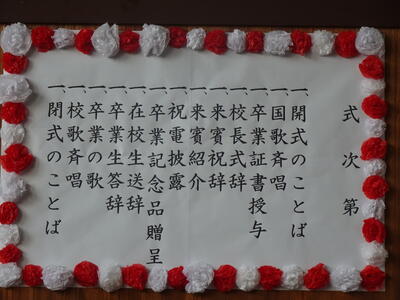 式次第
一、開式のことば
一、国歌斉唱
一、卒業証書授与
一、校長式辞
一、来賓祝辞
一、来賓紹介
一、祝電披露
一、卒業記念品贈呈
一、在校生送辞
一、卒業生答辞
一、卒業の歌
一、校歌斉唱
一、閉式のことば